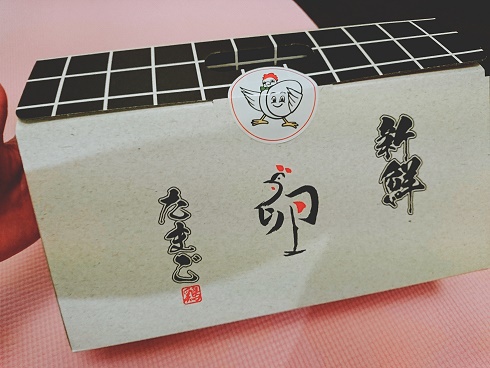 新鮮
卵
たまご